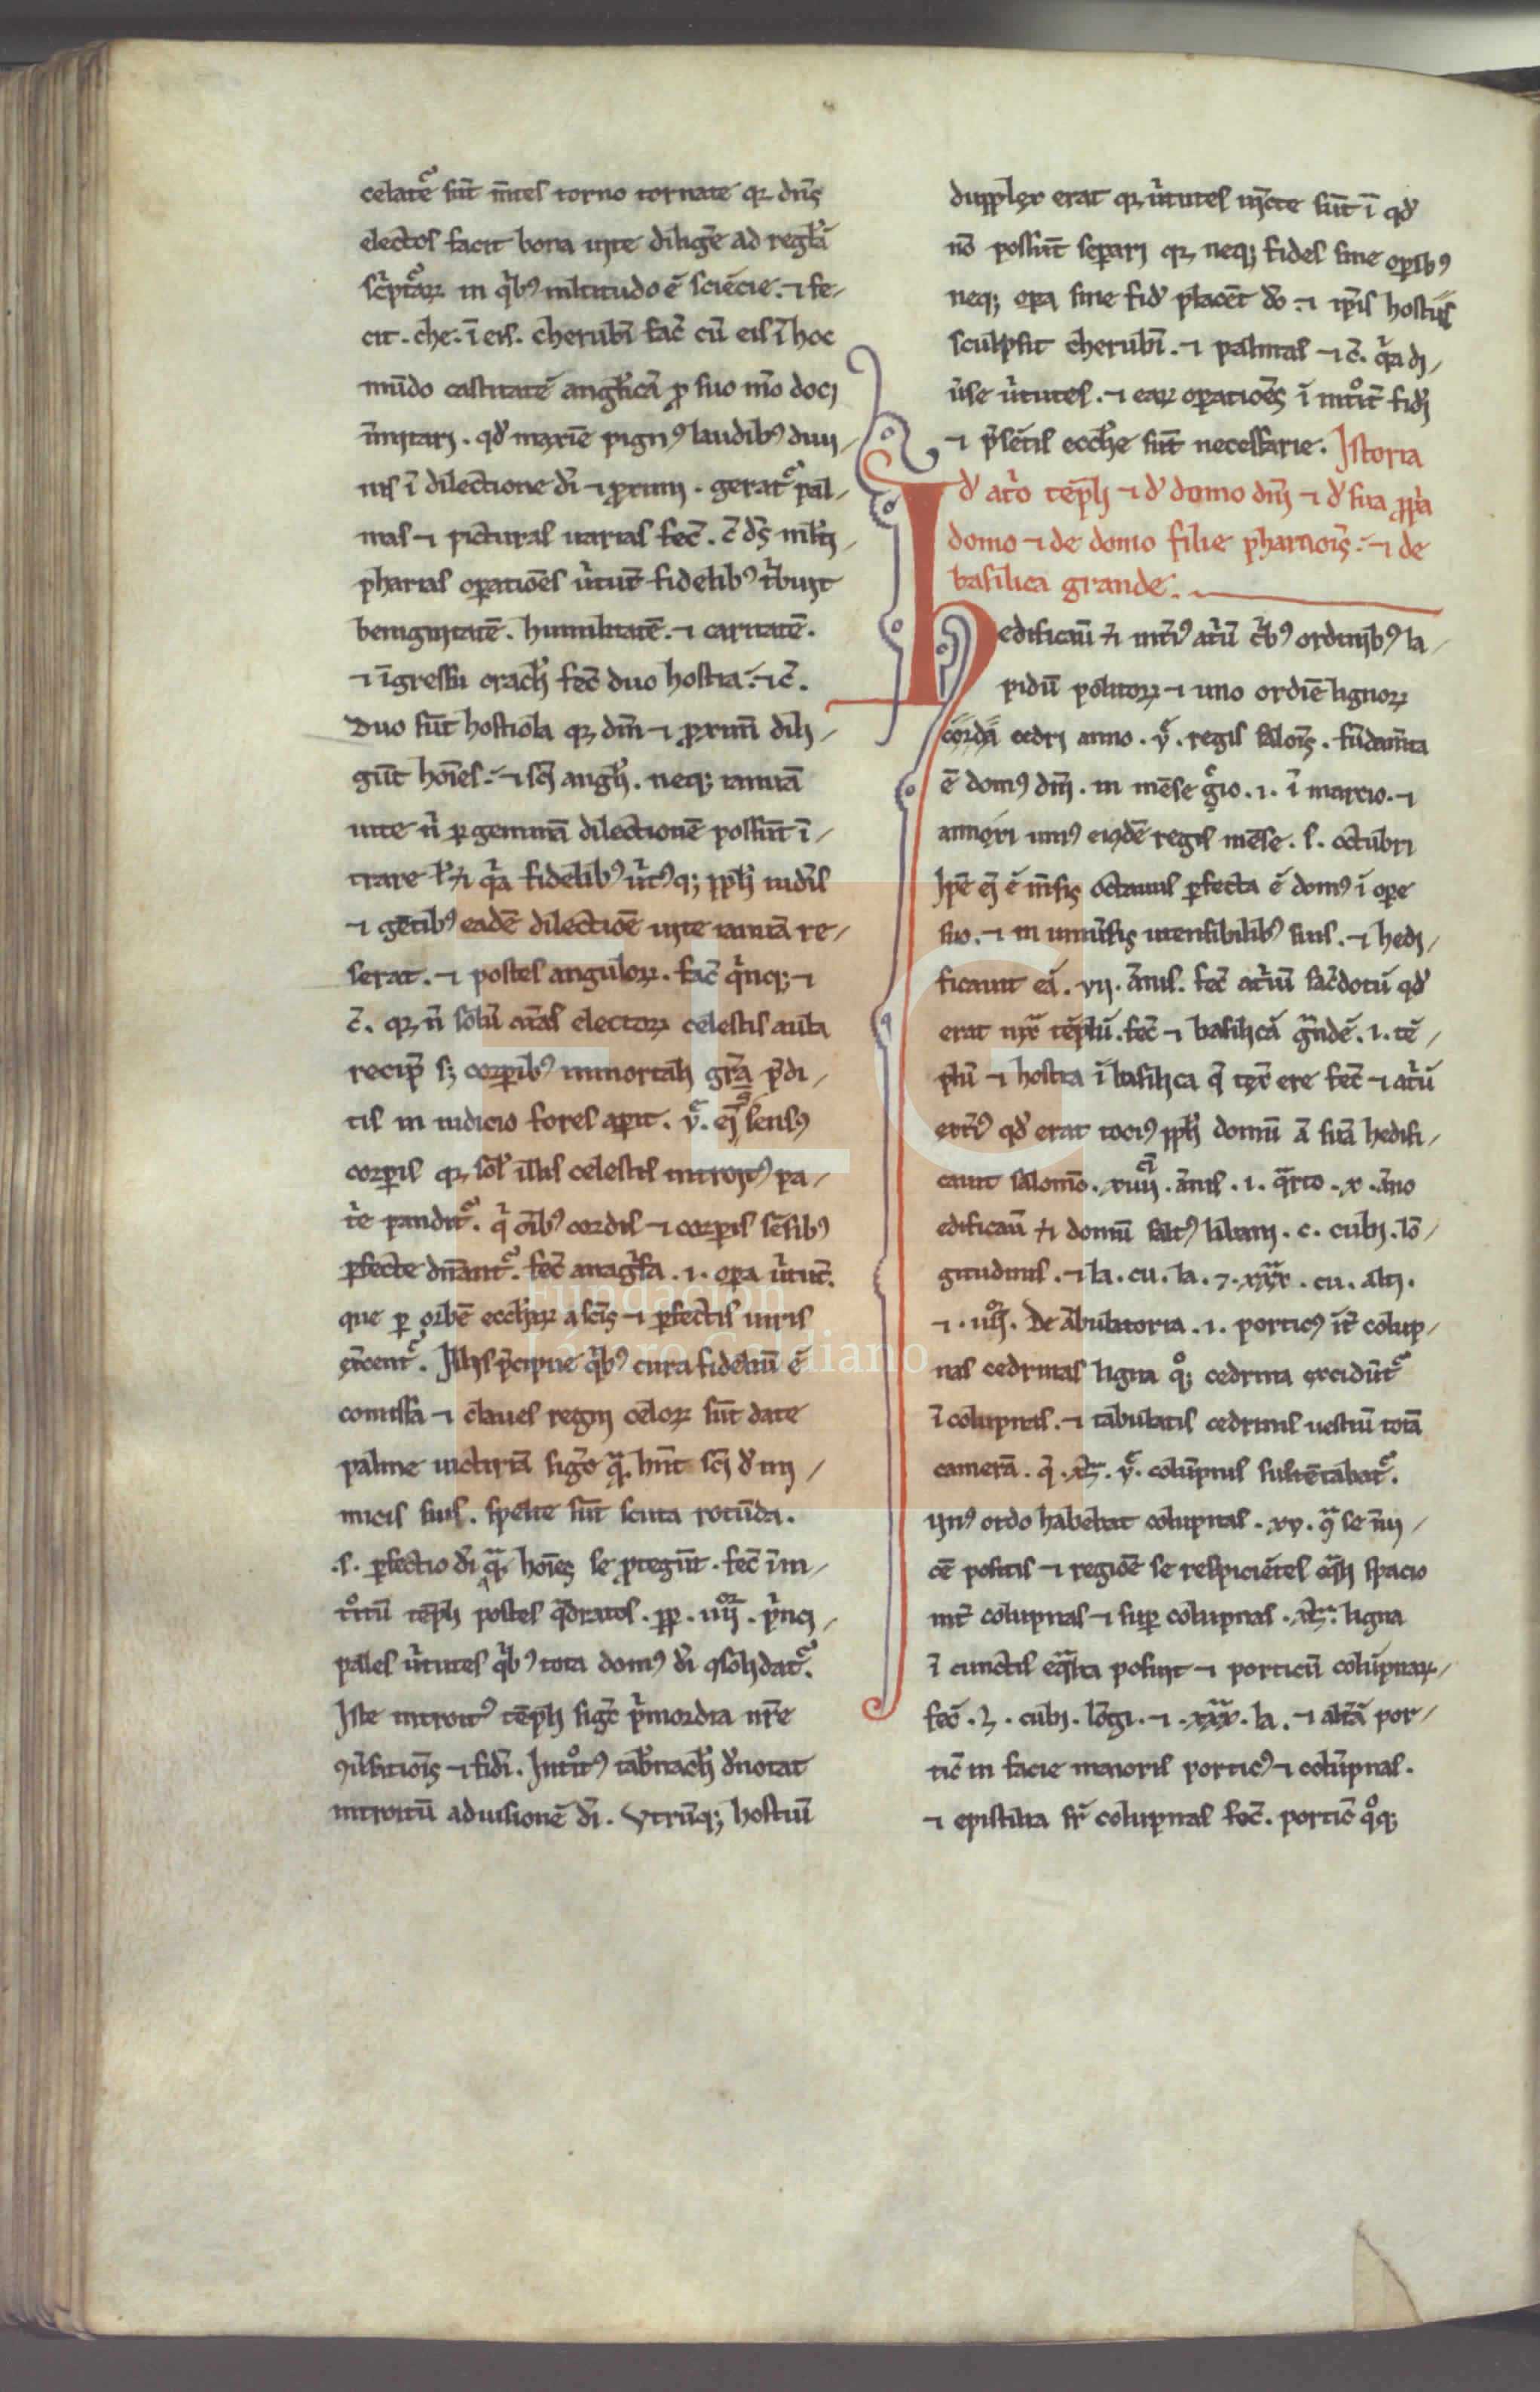 celate᷑ sūt m̄tes torno tornate qꝛ dn̄s
electos facit bona uite diligē ad reglā
sc̄ptaꝝ in qͥbꝰ ml̄titudo ē sciēcie. ⁊ fe-
cit. che. ī eis. cherubī fac̄ cū eis ī hoc
mūdo castitatē angl̄icā ꝓ suo m̄o doci
īmitari. qd̄ maxīe pignꝰ laudibꝰ diui-
nis ī dilectione dī ⁊ ꝓximi. gerat᷑ pal-
mas ⁊ picturas uarias fec̄. c̄ ds̄ ml̄ti-
pharias oꝑatiōes ūtut̄ fidelibꝰ tͥbuit
benignitatē. humilitatē. ⁊ caritatē.
⁊ īgressu oracl̄i fec̄ duo hostia. ⁊ c̄.
Duo sūt hostiola qꝛ dm̄ ⁊ ꝓximū dili-
gūt hoīes. ⁊ sc̄i angl̄i. neqꝫ ianuā
uite n̄ ꝑ geminā dilectionē possūt ī-
trare
⁊ gētibꝰ eadē dilectiōe uite ianuā re-
serat. ⁊ postes anguloꝝ. fac̄ qͥnqꝫ ⁊
c̄. qꝛ n̄ solū aīas electoꝝ celestis aula
recip̄ sꝫ corꝑibꝰ immortali gr̄a p̄di-
tis in iudicio fores aꝑit. v᷑. eī sensꝰ
corꝑis qꝛ sol̄ illis celestis introitꝰ pa-
tͥe pandit᷑. qͥ oībꝰ cordis ⁊ corꝑis sēsibꝰ
ꝑfecte dn̄ant᷑. fec̄ anagl̄fa. i. oꝑa ūtut̄.
que ꝑ orbē eccl̄iaꝝ a sc̄is ⁊ ꝑfectis uiris
ex̄cent᷑. Illis p̄cipue qͥbꝰ cura fideliū ē
comissa ⁊ claues regni celoꝝ sūt date
palme uictoriā sigō qͣ hn̄t sc̄i d̄ ini-
micis suis. spelte sūt scuta rotūda.
.s. ꝓtectio dī qͣ hoīes se ꝓtegūt. fec̄ ī in-
tͦitū tēpli postes qͣdratos. ꝓꝑ. iiijᵒʳ. pͥnci-
pales ūtutes qͥbꝰ tota domꝰ dī ꝯsolidat᷑.
Iste introitꝰ tēpli sigt̄ pͥmordia nr̄e
ꝯūsatiōis ⁊ fidī. Intͦitꝰ tab̄nacl̄i d̄notat
introitū ad uisionē dī. Vtrūqꝫ hostiū
duppler erat qꝛ ūtutes iūcte sūt ī qd̄
nō possūt seꝑari qꝛ neqꝫ fides sine oꝑibꝰ
neqꝫ oꝑa sine fid̄ placēt dō. ⁊ ip̄is hostiis
sculpsit cherubī. ⁊ palmas ⁊ c̄. qͥa di-
ūse ūtutes. ⁊ eaꝝ oꝑatiōes ī intͦit̄ fidī
⁊ p̄sētis eccl̄ie sūt necessarie. Istoria
d̄ atͥo tēpli ⁊ d̄ domo dn̄i ⁊ d̄ sua ꝓpͥa
domo ⁊ de domo filie pharaoīs. ⁊ de
basilica grande.
Hedificauī ⁊ intͥꝰ atͥū tͥbꝰ ordinibꝰ la-
pidū politoꝝ ⁊ uno ordīe lignoꝝ
cedri anno. v᷑. regis saloīs. fūdam̄ta
ē domꝰ dn̄i. in mēse gͥo. i. ī marcio. ⁊
eiꝰdē regis mēse. s. octubri
Ip̄e eī ē m̄sis octauus ꝑfecta ē domꝰ ī oꝑe
suo. ⁊ in uniūsis utensibilibꝰ suis. ⁊ hedi-
ficauit eā. vij. ānis. fec̄ atͥū sac̄dotū qd̄
erat iux̄ tēplū. fec̄ ⁊ basilicā gͣndē. i. tē-
plū ⁊ hostia ī basilica q̄ tex̄ ere fec̄ ⁊ atͥū
ext̄iꝰ qd̄ erat tociꝰ pp̄li domū ā suā hedifi-
cauit salomō. xiiij. ānis. i. qͣrto. x. āno
edificauī ⁊ domū saltꝰ libani. c. cubi. lō-
gitudinis. ⁊ la. cu. la. ⁊. xxx. cu. alti.
⁊. iiijᵒʳ. De ābulatoria. i. porticꝰ īt̄ colup-
nas cedrinas ligna qͦqꝫ cedrina excidūt᷑
ī colupnas. ⁊ tabulatis cedrinis uestiū totā
camerā. q̄. xl. v᷑. colūpnis sustētabat᷑.
Vnꝰ ordo habebat colupnas. xv. qͣ se īui-
cē positis ⁊ regiōe se respiciētes eqͣli spacio
int̄ colupnas ⁊ suꝑ colupnas. xl. ligna
ī cunctis eqͣlia posuit ⁊ porticū colūpnaꝝ-
fec̄. l. cubi. lōgi. ⁊. xxx. la. ⁊ altā por-
tic̄ in facie maioris porticꝰ ⁊ colūpnas.
⁊ epistilia sr̄ colupnas fec̄. portic̄ qͦqꝫ
Fundación
Lázaro Galdiano